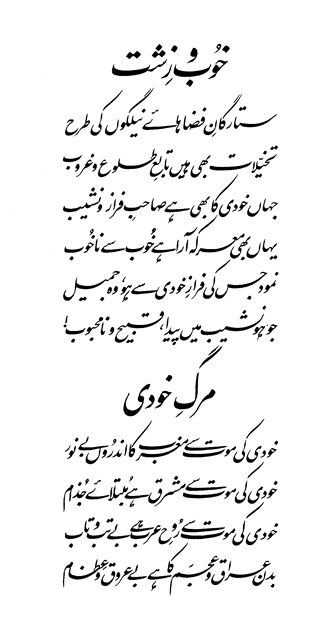 خُوب و زِشت
ستارگانِ فضاہائے نیلگوں کی طرح
تخیّلات بھی ہیں تابعِ طلوع و غروب
جہاں خودی کا بھی ہے صاحبِ فراز و نشیب
یہاں بھی معرکہ آرا ہے خُوب سے ناخُوب
نمود جس کی فرازِ خودی سے ہو، وہ جمیل
جو ہو نشیب میں پیدا، قبیح و نامحبوب!
مرگِ خودی
خودی کی موت سے مغرب کا اندرُوں بے نور
خودی کی موت سے مشرق ہے مُبتلائے جُذام
خودی کی موت سے رُوحِ عرب ہے بے تب و تاب
بدن عراق و عجم کا ہے بے عروق و عِظام